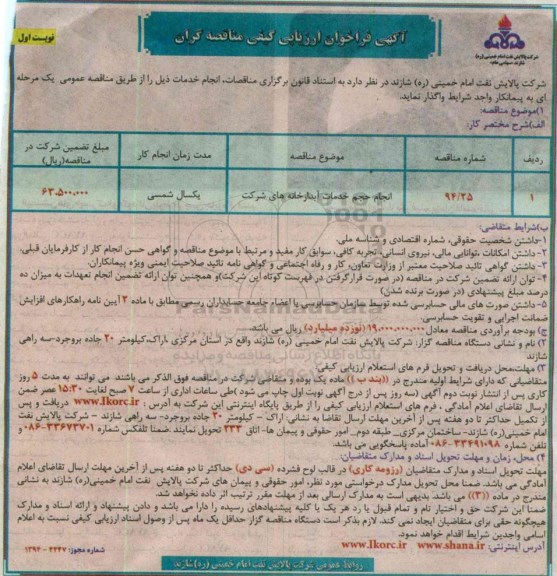 آگهی فراخوان ارزیابی کیفی مناقصه گران
نوبت اول
شرکت پالایش نفت امام خمینی (ره)
شرکت پالایش نفت امام خمینی (ره) شازند در نظر دارد به استناد قانون برگزاری مناقصات، انجام خدمات ذیل را از طریق مناقصه عمومی یک مرحله
ای به پیمانکار واجد شرایط واگذار نماید.
۱)موضوع مناقصه:
الف)شرح مختصر کار:
ردیف شماره مناقصه موضوع مناقصه مدت زمان انجام کار مبلغ تضمین شرکت در مناقصه(ریال)
۱ ۹۴/۲۵ انجام حجم خدمات آبدارخانه های شرکت یکسال شمسی ۶۳.۵۰۰.۰۰۰
ب)شرایط متقاضی:
۱-داشتن شخصیت حقوقی، شماره اقتصادی و شناسه ملی.
۲- داشتن امکانات ،توانایی مالی، نیروی انسانی، تجربه کافی، سوابق کار مفید و مرتبط با موضوع مناقصه و گواهی حسن انجام کار از کارفرمایان قبلی.
۳- داشتن گواهی تائید صلاحیت معتبر از وزارت تعاون، کار و رفاه اجتماعی و گواهی نامه تائید صلاحیت ایمنی ویژه پیمانکاران.
۴- توان ارائه تضمین شرکت در مناقصه (در صورت قرارگرفتن در فهرست کوتاه این شرکت)و همچنین توان ارائه تضمین انجام تعهدات به میزان ده
درصد مبلغ پیشنهادی (در صورت برنده شدن)
۵- داشتن صورت های مالی حسابرسی شده توسط سازمان حسابرسی یا اعضاء جامعه حسابداران رسمی مطابق با ماده ۲ آیین نامه راهکارهای افزایش
ضمانت اجرایی و تقویت حسابرسی.
ج) بودجه برآوردی مناقصه معادل ۱۹.۰۰۰.۰۰۰.۰۰۰(نوزده میلیارد) ریال می باشد.
۲) نام و نشانی دستگاه مناقصه گزار: شرکت پالایش نفت امام خمینی (ره) شازند واقع در استان مرکزی ،اراک،کیلومتر ۲۰ جاده بروجرد-سه راهی
شازند
۳) مهلت،محل دریافت و تحویل فرم های استعلام ارزیابی کیفی:
متقاضیانی که دارای شرایط اولیه مندرج در ((بند ب )) ماده یک بوده و متقاضی شرکت در مناقصه فوق الذکر می باشند، می توانند به مدت ۵ روز
کاری پس از انتشار نوبت دوم آگهی (سه روز پس از درج آگهی نوبت اول چاپ می شود )طی ساعات اداری از ساعت ۷ صبح لغایت ۱۵:۳۰ عصر ضمن
ارسال تقاضای اعلام آمادگی ، فرم های استعلام ارزیابی کیفی را از طریق پایگاه اینترنتی این شرکت به آدرس : www.Ikorc.ir دریافت و پس
از تکمیل حداکثر تا دو هفته پس از آخرین مهلت ارسال تقاضا به نشانی: اراک – کیلومتر ۲۰ جاده بروجرد- سه راهی شازند – شرکت پالایش نفت
امام خمینی(ره) شازند- ساختمان مرکزی_ طبقه دوم_ امور حقوقی و پیمان ها- اتاق ۲۳۳ تحویل نمایند.ضمنا تلفکس شماره ۳۳۶۷۳۷۰۱-۰۸۶ و
تلفن شماره ۳۳۴۹۱۰۹۸-۰۸۶ آماده پاسخگویی می باشد.
۴) محل، زمان و مهلت تحویل اسناد و مدارک متقاضیان:
مهلت تحویل اسناد و مدارک متقاضیان (رزومه کاری) در قالب لوح فشرده (سی دی) حداکثر تا دو هفته پس از آخرین مهلت ارسال تقاضای اعلام
آمادگی می باشد. ضمنا محل تحویل مدارک درخواستی مورد نظر، امور حقوقی و پیمان های شرکت پالایش نفت امام خمینی(ره) شازند به نشانی
مندرج در ماده ((۳)) می باشد. بدیهی است به مدارک ارسالی بعد از مهلت مقرر ترتیب اثر داده نخواهد شد.
ضمنا این شرکت حق و اختیار تام و تمام قبول یا رد هر یک یا کلیه پیشنهادهای رسیده را دارا می باشد و دادن پیشنهاد و ارائه اسناد و مدارک
هیچگونه حقی برای متقاضیان ایجاد نمی کند. لازم بذکر است دستگاه مناقصه گزار حداقل یک ماه پس از وصول اسناد ارزیابی کیفی نسبت به اعلام
اسامی واجدین شرایط اقدام خواهد نمود.
آدرس اینترنتی: www.Ikorc.ir www.shana.ir
شماره مجوز: ۳۴۴۷-۱۳۹۴
روابط عمومی شرکت پالایش نفت امام خمینی (ره)شازند
ParsNamadData
پایگاه اطلاع رسانی مناقصه و مزایده